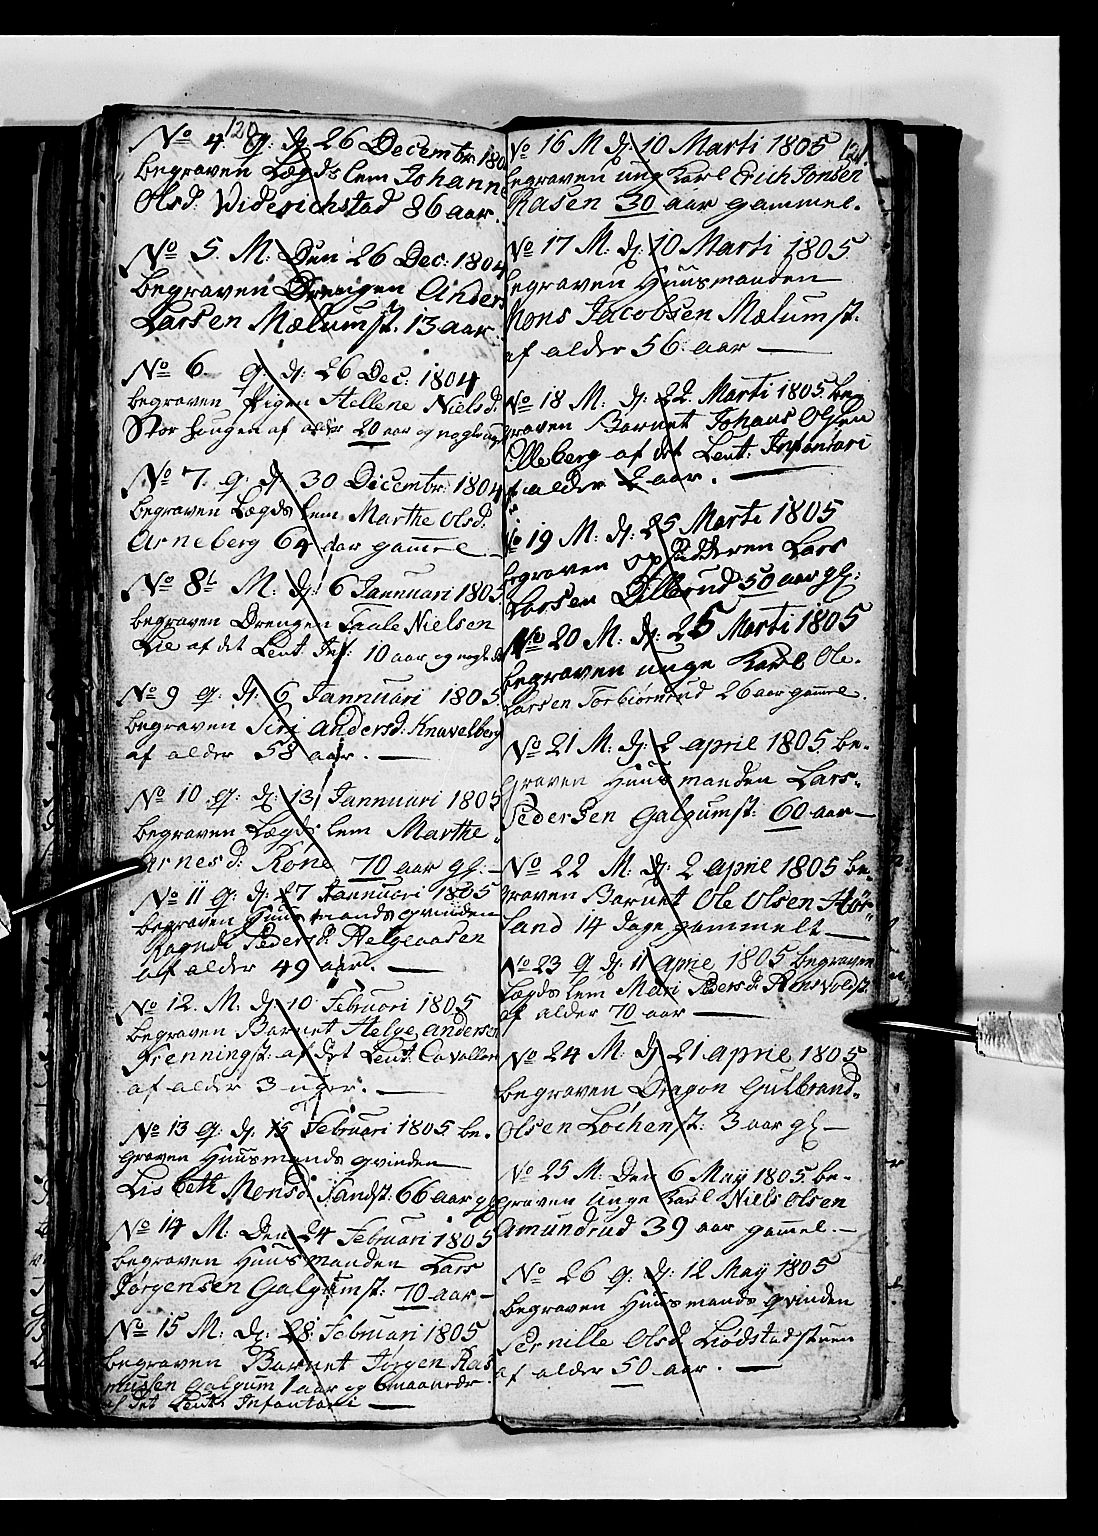 120
No 4. Q: D: 26 Decembr: 180
begraven Lægds lem Johann
Olsd: Widerichstad 86 aar.
No 5. M: Den 26 Dec: 1804
begraven Drengen Anders
Larsen Mælumst. 13 aar.
No 6 Q: D: 26 Dec: 1804
begraven Pigen Hellene Nielsd:
af alder 20 aar og nogle
No 7. Q: D: 30 Decembr: 1804
begraven Lægds lem Marthe Olsd:
Arneberg 64 aar gamel
No 8 M: D: 6 Januari 1805
begraven Drengen Taale Nielsen
Lie af det Leut: Inf: 10 aar og
No 9 Q: D: 6 Januari 1805
begraven Siri Andersd: Knavelberg
af alder 58 aar. —
No 10 Q: D: 13 Januari 1805
begraven Lægds lem Marthe
Arnesd: Røne 70 aar gl. —
No 11 Q: D: 27 Januari 1805
begraven Huusmands qvinden
Pedersd: Helgeaasen
af alder 49 aar. —
No 12. M: D: 10 Februari 1805
begraven Barnet Helge Anders
af det Leut: Cavalleri
af alder 3 uger. —
No 13 Q: D: 15 Februari 1805 be-
graven Huusmands qvinden
Lisbeth Monsd: Sandst: 66 aar gl
No 14 M: Den 24 Februari 1805
begraven Huusmanden Lars
Jørgensen Galgumst: 70 aar —
No 15 M: D: 28 Februari 1805
begraven Barnet Jørgen Ras
mussen Galgum 1 aar og 6 maaneder
af det Leut: Infantari —
121.
No 16 M D: 10 Marti 1805
begraven ung Karl Erich Jonsen
Rasen 30 aar gammel.
No 17 M: D: 10 Marti 1805
begraven Huusmanden
Mons Jacobsen Mælumst.
af alder 56 aar —
No 18 M: D: 22 Marti 1805 be-
graven Barnet Johans Olsen
Elleberg af det Leut: Infantari
af alder 2 aar. —
No 19 M: D: 25 Marti 1805
begraven Lars
Larsen 50 aar gl:
No 20 M: D: 25 Marti 1805
begraven unge Karl Ole
Larsen Torbiørnrud 26 aar gamel.
No 21 M: D: 2 April 1805 be-
graven Huusmanden Lars
Pedersen Galgumst: 60 aar —
No 22 M: D: 2 April 1805 be-
graven Barnet Ole Olsen Hør-
sand 14 Dage gammelt —
No 23 Q D: 11 April 1805 begraven
Lægds lem Mari Pedersd:
af alder 70 aar —
No 24 M: D: 21 April 1805
begraven Dragon Gulbrand
Olsen Løchenst: 3 aar gl —
No 25 M: Den 6 May 1805 be-
graven unge Karl Niels Olsen
Amundrud 39 aar gamel. —
No 26 Q: D: 12 May 1805
begraven Huusmands qvinden
Pernille Olsd: Liødstadstuen
af alder 50 aar. —